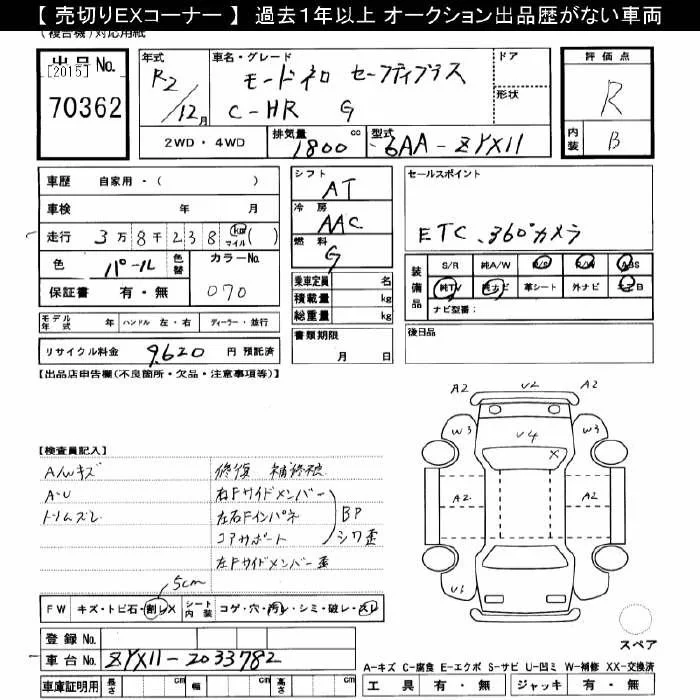 【 売切りEXコーナー 】 過去1年以上 オークション出品歴がない車両
(複合機)対応用紙
出品No.
[2015]
70362
年式
R2/12月
車名・グレード
モード ネロ セーフティプラス
C-HR G
ドア
形状
2WD・4WD
排気量 1800 cc
型式 6AA-ZYX11
評価点
R
内装 B
車歴 自家用・( )
車検 年 月
走行 3万8千238 km マイル ( )
色 パール 色替 カラーNo. 070
保証書 有・無
シフト AT
冷房 AAC
燃料 G
乗車定員 名
積載量 kg
総重量 kg
セールスポイント
ETC、360°カメラ
装備品 S/R 純A/W P/S P/W ABS
純TV 純ナビ 革シート 外ナビ エアB
ナビ型番:
モデル年式 年 ハンドル 左・右 ディーラー・並行
書類期限
月 日
後日品
リサイクル料金 9,620 円 預託済
【出品店申告欄(不良箇所・欠品・注意事項等)】
A2 U2 A2
W3 U4 W3
X
A2 A2
【検査員記入】
A/Wキズ
A・U
トリムズレ
修復 補修跡
右Fサイドメンバー
左右Fインパネ
コアサポート
BP
シワ歪
左Fサイドメンバー歪
5cm
FW キズ・トビ石・割レX シート内装 コゲ・穴・汚レ・シミ・破レ・スレ
登録No.
車台No. ZYX11-2033782
車庫証明用 長さ cm 幅 cm 高さ cm
スペア
A-キズ C-腐食 E-エクボ S-サビ U-凹ミ W-補修 XX-交換済
工具 有・無 ジャッキ 有・無